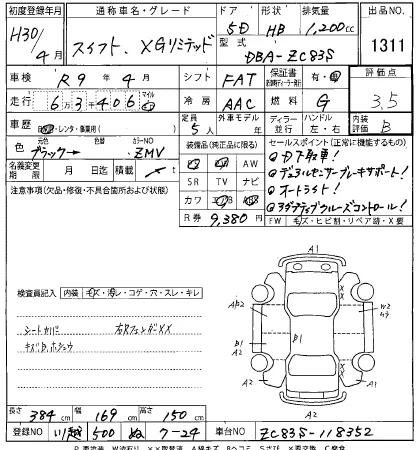 初度登録年月 通称車名・グレード ドア 形状 排気量 出品NO
H30/4月 スイフト、XGリミテッド 5D HB 1,200cc 1311
型式 DBA-ZC83S
車検 R9年4月 シフト FAT 保証書 有・無 評価点 3.5
走行 6万3千406 マイル km 冷房 AAC 燃料 G
車歴 自家・レンタ・事業用( ) 定員 5人 外車モデル年 ディーラー 並行 ハンドル 左・右 内装評価 B
色 元色 ブラック→ 色替 カラーNO ZMV
名義変更期限 月 日迄 積載
装備品(純正品に限る)
AW
SR TV ナビ
カワ エアB
R券 9,380円
セールスポイント(正常に機能するもの)
下取車!
デュアルセンサーブレーキサポート!
オートライト!
アダプティブクルーズコントロール!
FW キズ・ヒビ割・リペア跡・X要
注意事項(欠品・修復・不具合箇所および状態)
検査員記入 内装 キズ・汚レ・コゲ・穴・スレ・キレ
シートカバー 右RフェンダXX
キズB、ホシュウ
A1
AB2
B1
A2
B1
W2
A2
A1
A1
A2
長さ 384cm 幅 169cm 高さ 150cm
登録NO 川越 500 ぬ 7-24 車台NO ZC83S-118352